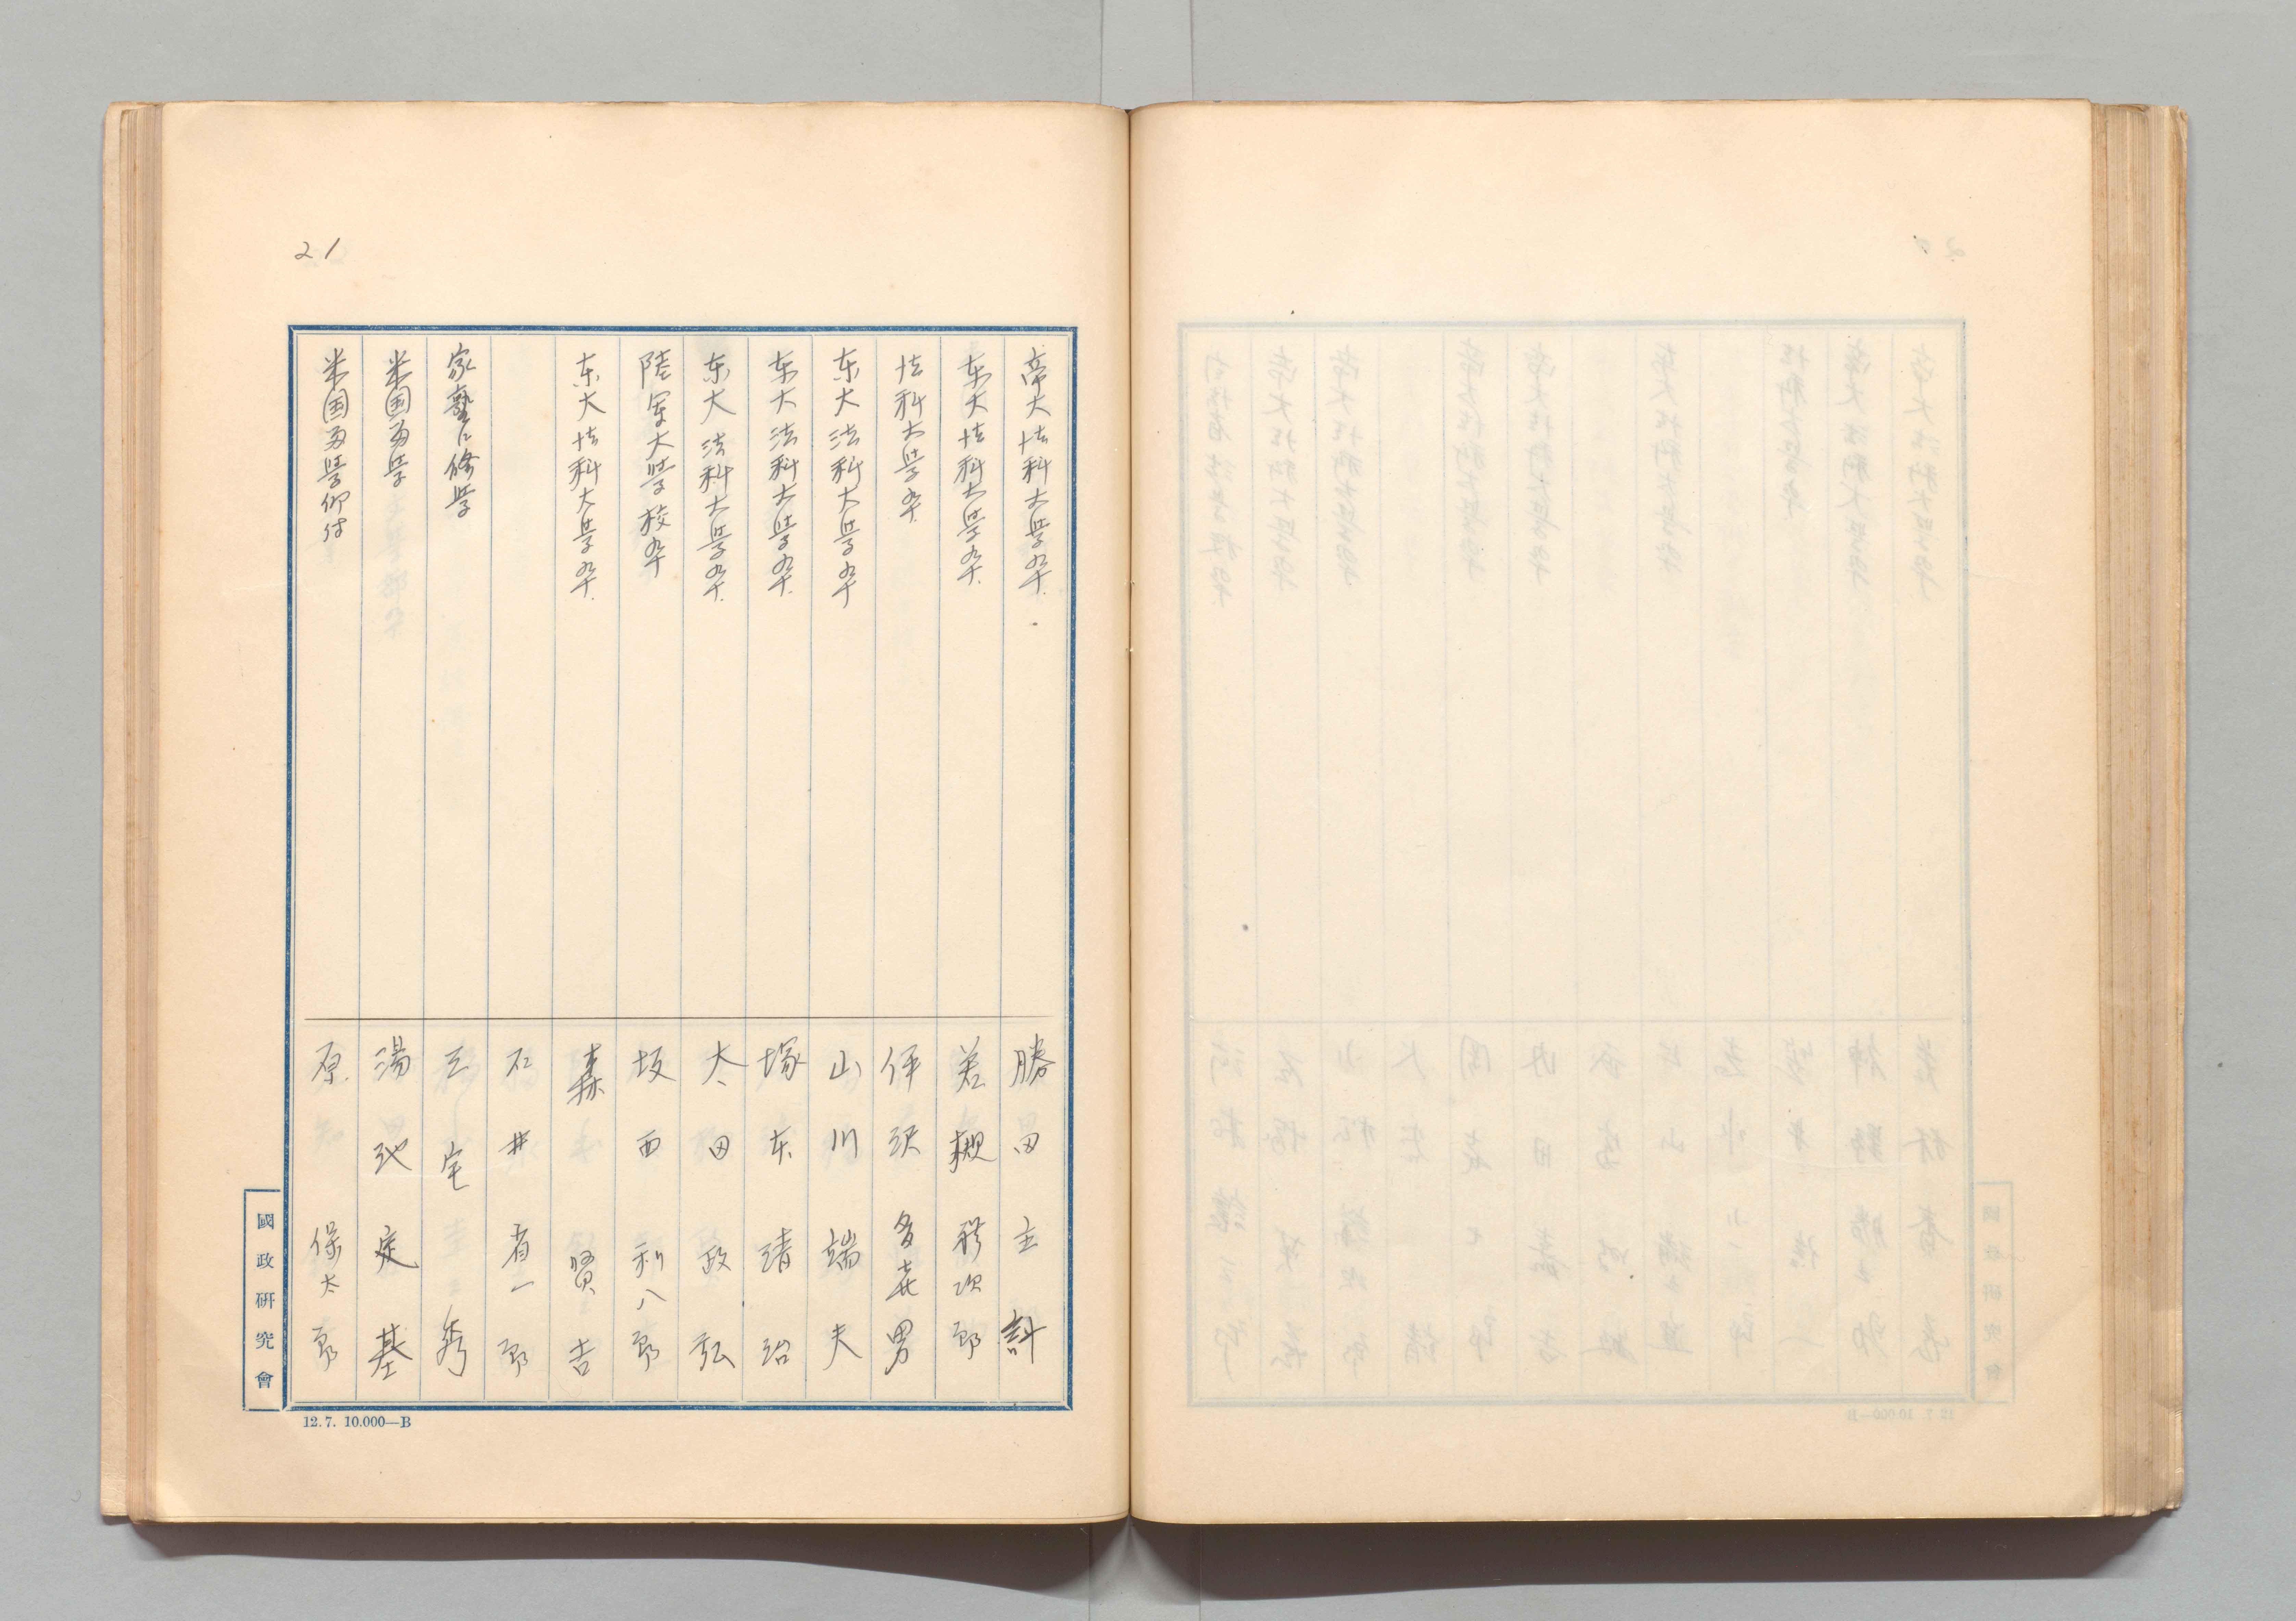 21
帝大法科大学卒. 勝田主計
东大法科大学卒. 若槻礼次郎
法科大学卒. 伊沢多喜男
东大法科大学卒 山川端夫
东大法科大学卒. 塚本清治
东大法科大学卒. 太田政弘
陸軍大学校卒 坂西利八郎
东大法科大学卒. 森賢吉
石井省一郎
家塾ニ修学 三宅秀
米国留学 湯地定基
米国留学仰付 原保太郎
國政研究會
12.7. 10.000—B